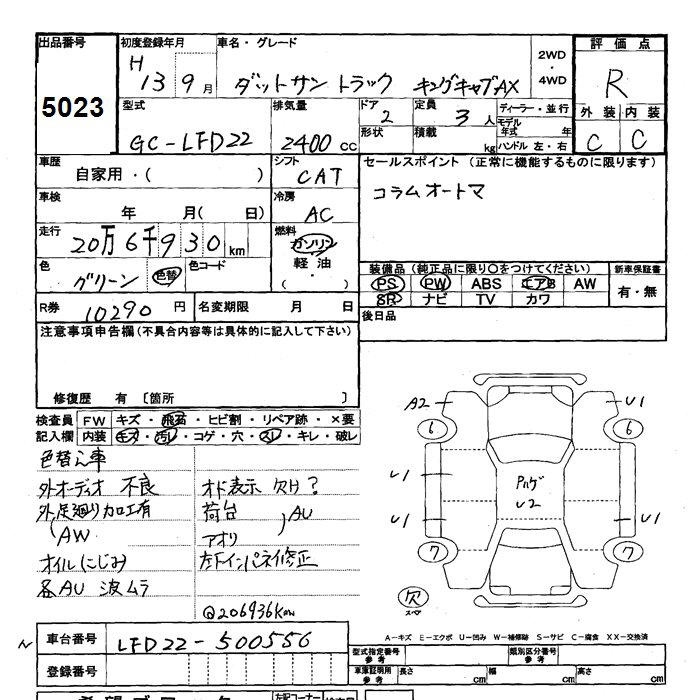 出品番号
5023
初度登録年月
H 13 9月
車名・グレード
ダットサン トラック キングキャブAX
2WD
・
4WD
評価点
R
外装 内装
C C
型式
GC-LFD22
排気量
2400 cc
ドア
2
形状
定員
3 人
積載
kg
ディーラー・並行
モデル年式 年
ハンドル 左・右
車歴
自家用・( )
シフト
CAT
セールスポイント (正常に機能するものに限ります)
コラムオートマ
車検
年 月( 日)
冷房
AC
走行
20万6千930km
燃料
ガソリン
軽油
・
( )
色
グリーン
色替
色コード
装備品(純正品に限り○をつけてください)
PS PW ABS エアB AW
SR ナビ TV カワ
新車保証書
有・無
R券
10290 円
名変期限 月 日
後日品
注意事項申告欄(不具合内容等は具体的に記入して下さい)
修復歴 有 〔箇所 〕
検査員記入欄
FW キズ・飛石・ヒビ割・リペア跡・×要
内装 キズ・汚レ・コゲ・穴・スレ・キレ・破レ
色替え車
外オーディオ 不良
外足廻り加工有
(AW
オイルにじみ
各AU 波ムラ
オド表示 欠け?
荷台
アオリ
)AU
左下インパネ修正
Q206936Km
A2
U1
6
6
U1
U1
U1
7
7
Pハゲ
U2
欠
スペア
A-キズ E-エクボ U-凹み W-補修跡 S-サビ C-腐食 XX-交換済
車台番号
LFD22-500556
登録番号
型式指定番号
参考
類別区分番号
参考
車庫証明用
参考
長さ cm
幅 cm
高さ cm